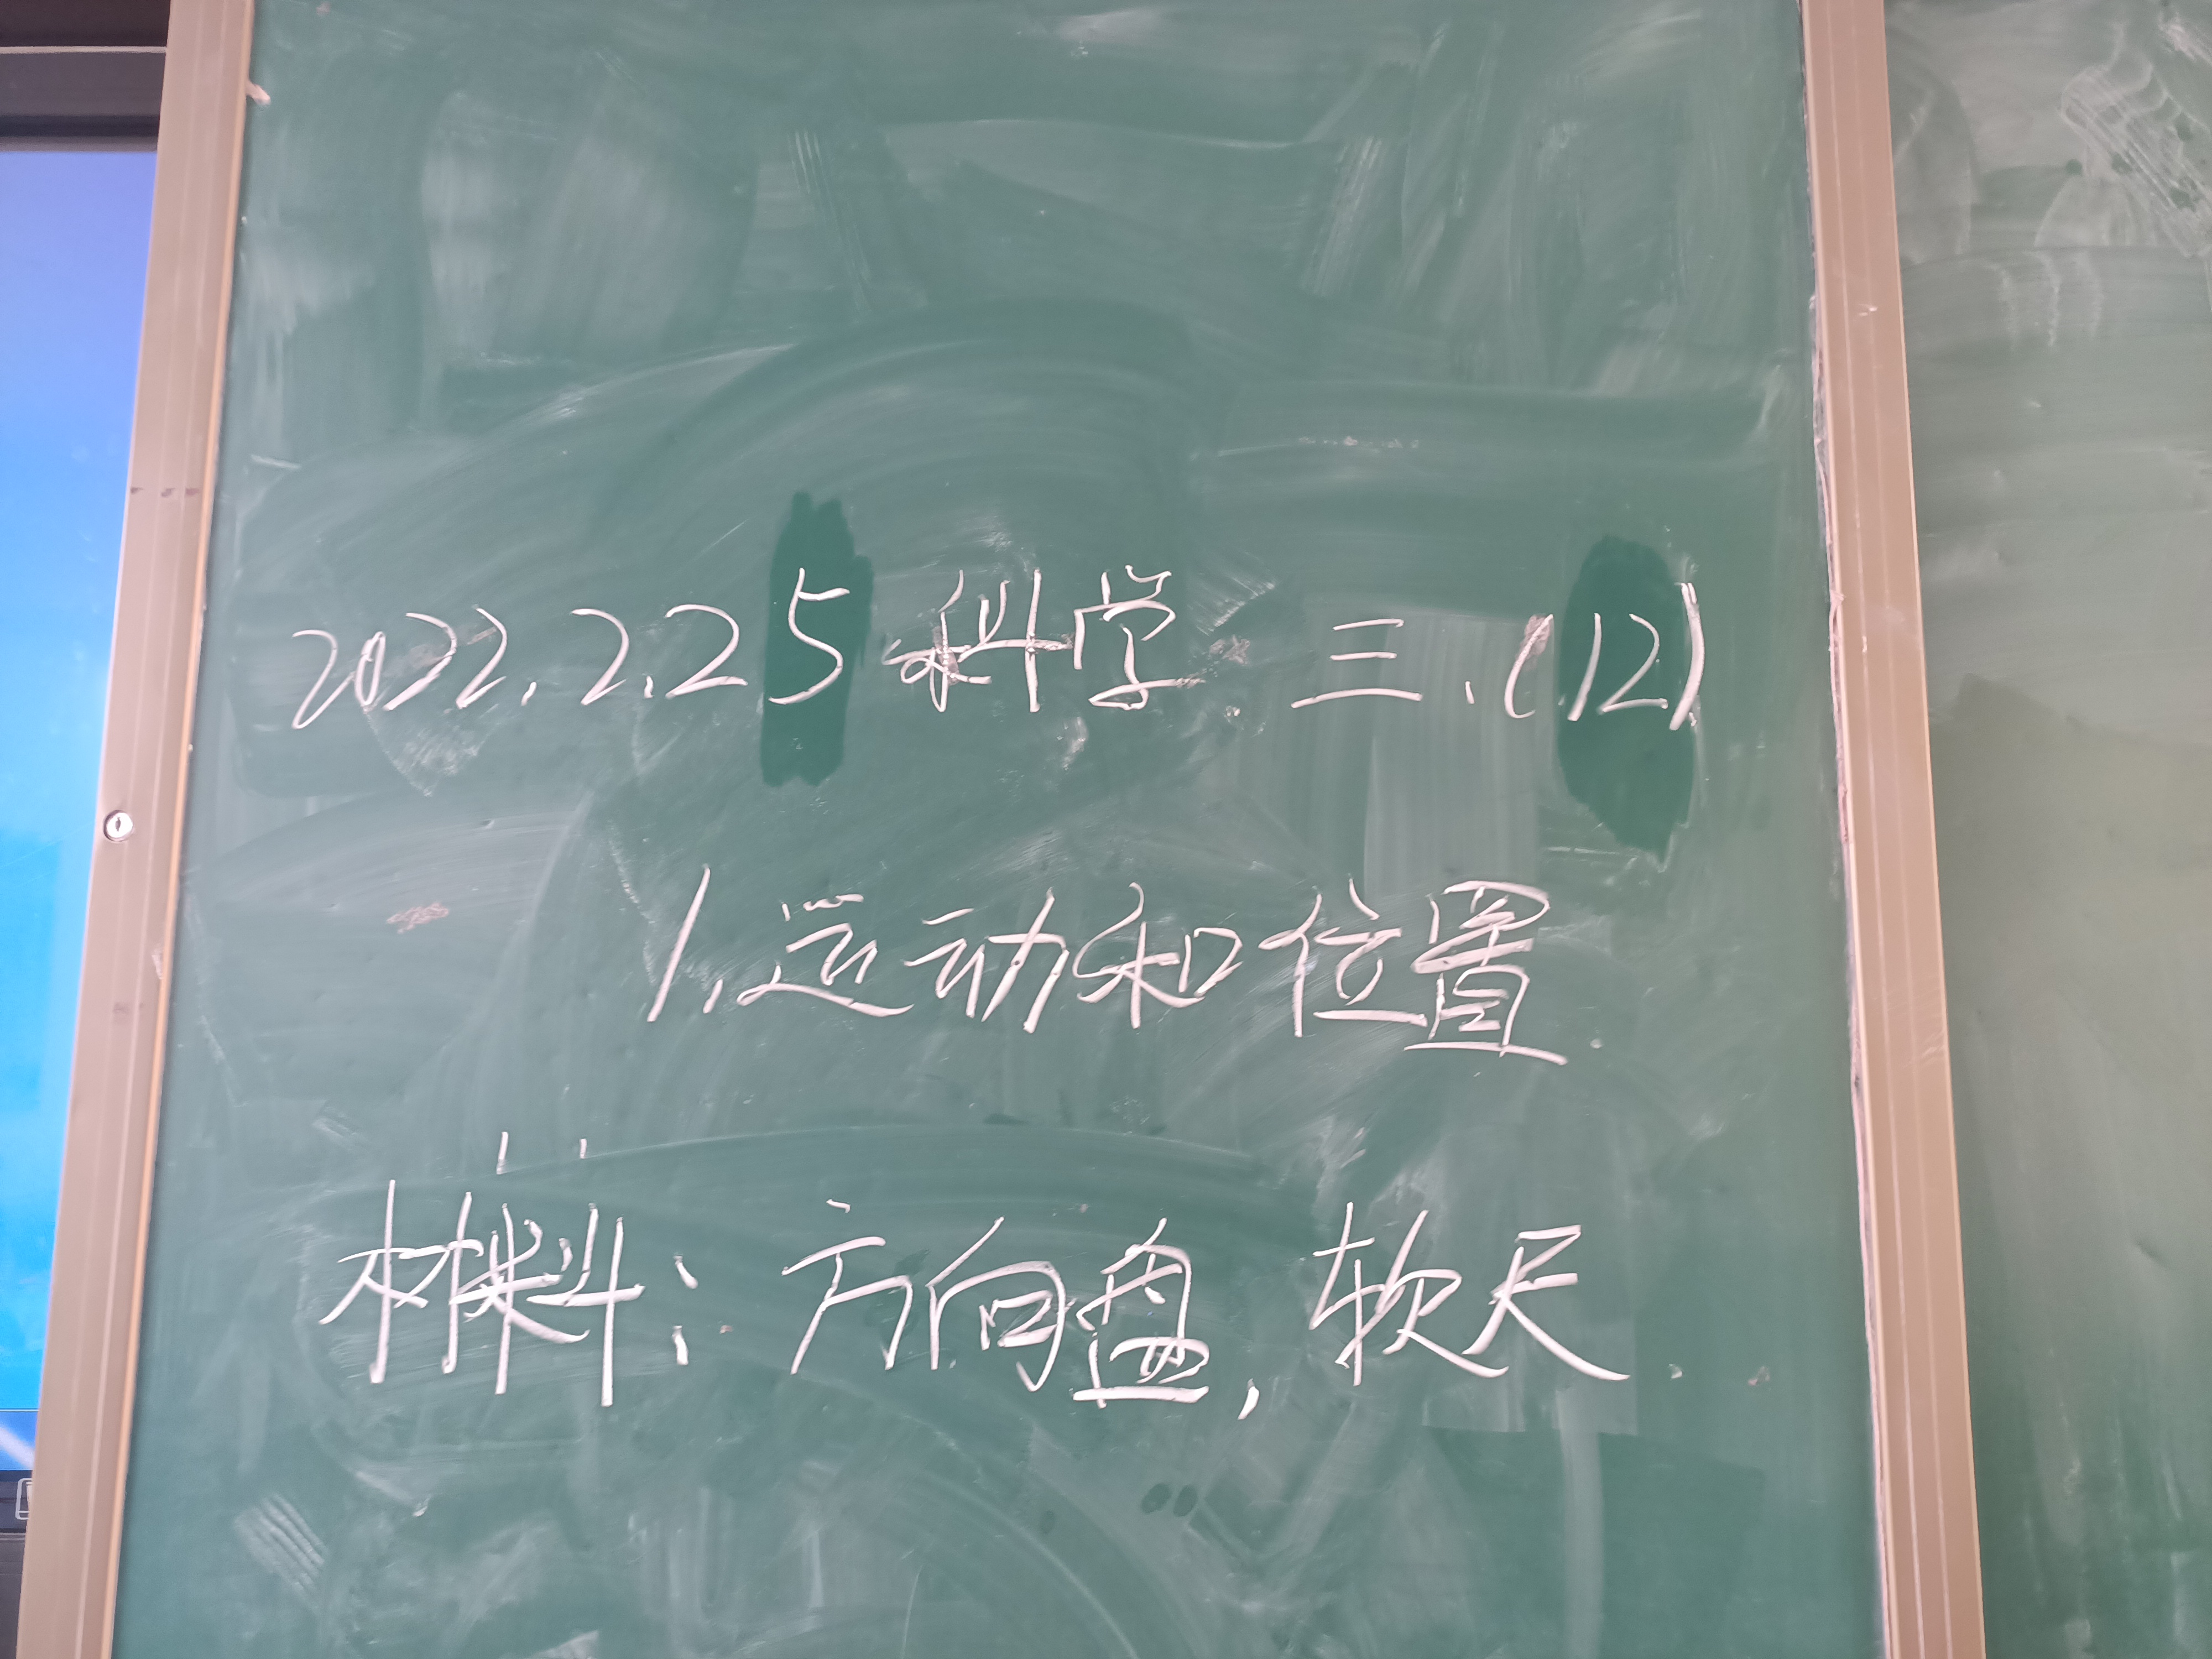 2022.2.25 科学 三.(12)
1.运动和位置.
材料：方向盘,软尺.